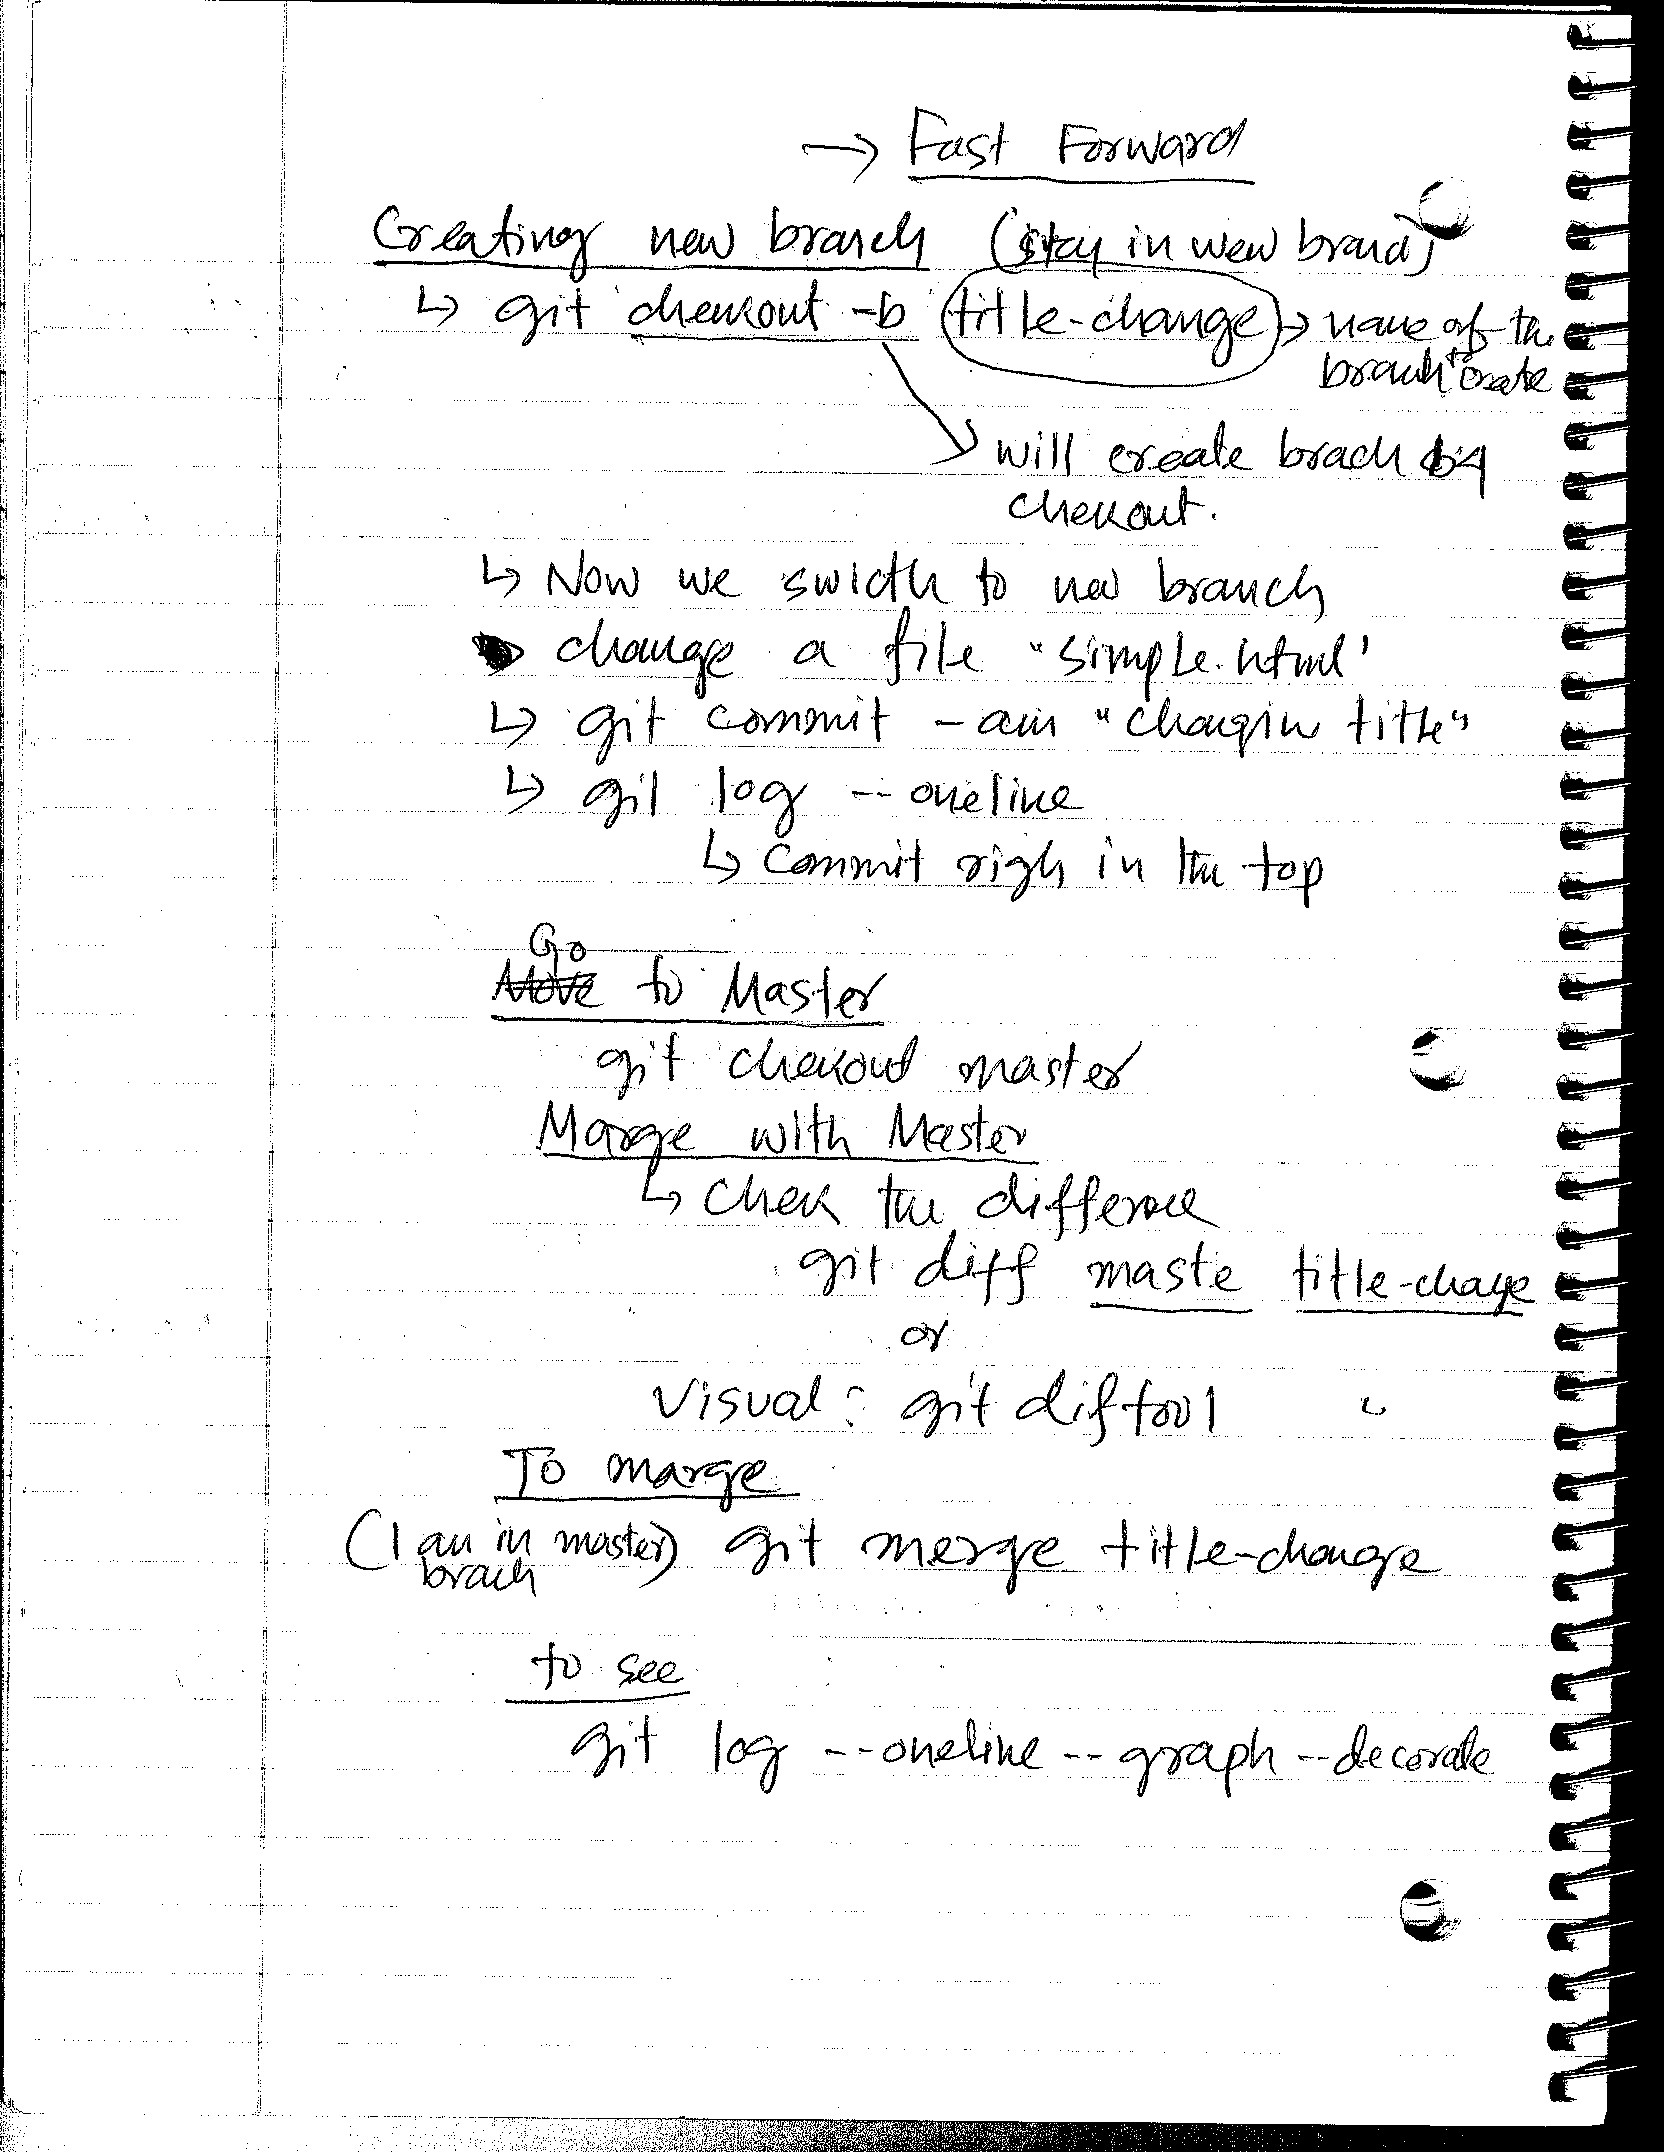 → Fast Forward
Creating new branch (stay in new branch)
↳ git checkout -b title-change → name of the
branch to create
will create brach by
checkout.
↳ Now we swicth to new branch
change a file "simple.html"
↳ git commit -am "changin title"
↳ git log --oneline
↳ commit righ in the top
Go
Move to Master
git checkout master
Marge with Master
↳ Check the difference
git diff maste title-change
or
Visual: git diftool "
To marge
(I am in master) git merge title-change
brach
to see
git log --oneline --graph --decorate